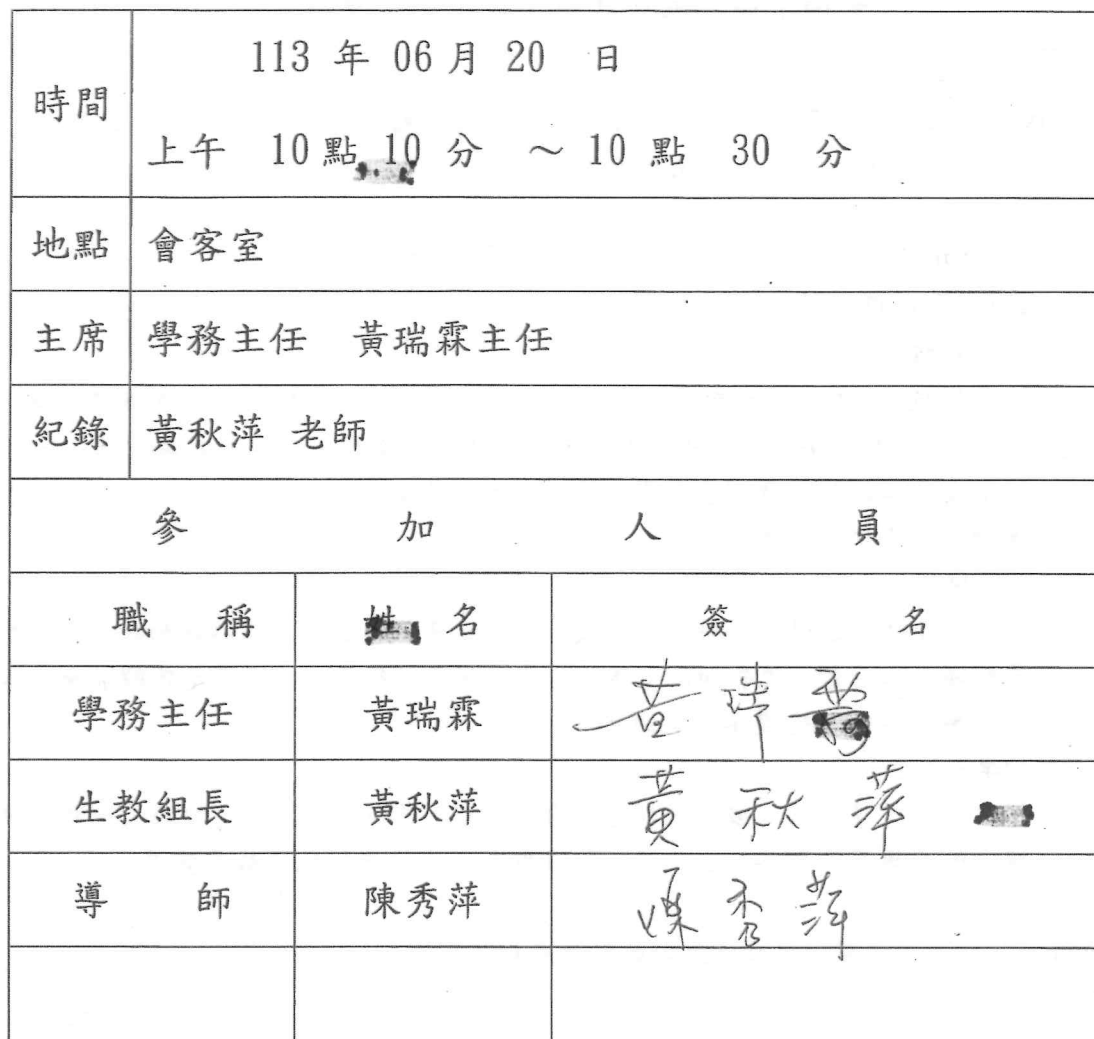 時間 113 年 06 月 20 日
上午 10 點 10 分 ～ 10 點 30 分
地點 會客室
主席 學務主任 黃瑞霖主任
紀錄 黃秋萍 老師
參加人員
職稱 姓名 簽名
學務主任 黃瑞霖 黃瑞霖
生教組長 黃秋萍 黃秋萍
導師 陳秀萍 陳秀萍